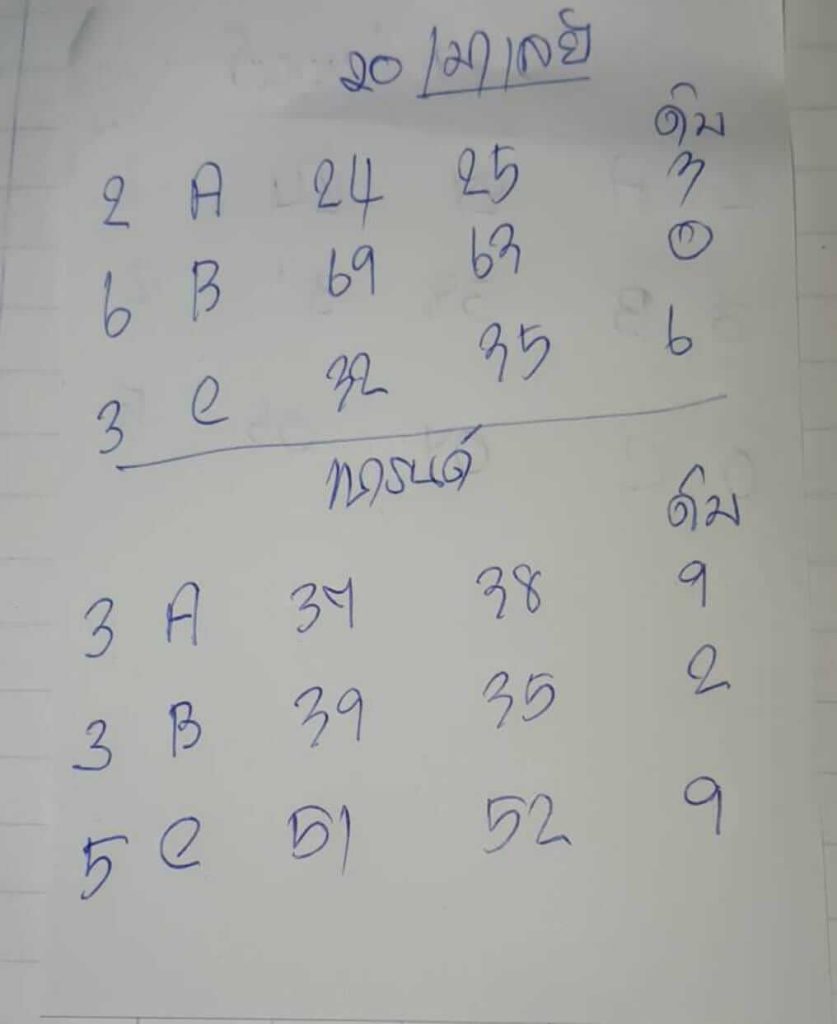 20 มาเลย์
ดับ
2 A 24 25 3
6 B 69 63 0
3 C 32 35 6
การันต์
ดับ
3 A 37 38 9
3 B 39 35 2
5 C 51 52 9